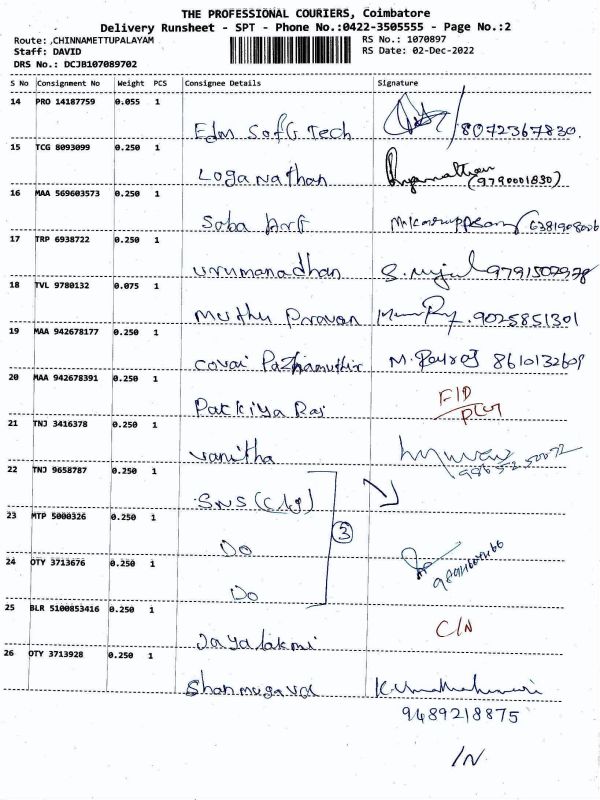 THE PROFESSIONAL COURIERS, Coimbatore
Delivery Runsheet - SPT - Phone No.:0422-3505555 - Page No.:2
Route: ,CHINNAMETTUPALAYAM RS No.: 1070897
Staff: DAVID RS Date: 02-Dec-2022
DRS No.: DCJB107089702
S No Consignment No Weight PCS Consignee Details Signature
14 PRO 14187759 0.055 1
Edm Soft Tech /8072367830.
15 TCG 8093099 0.250 1
Loganathan (9790001830)
16 MAA 569603573 0.250 1
Soba Art
17 TRP 6938722 0.250 1
Urumanadhan
18 TVL 9780132 0.075 1
Muthu Paravan 9025851301
19 MAA 942678177 0.250 1
Covai Pazhamuthir 8610132609
20 MAA 942678391 0.250 1
Patkiya Raj
21 TNJ 3416378 0.250 1
Vanitha
22 TNJ 9658787 0.250 1
SNS (Clg)
23 MTP 5000326 0.250 1
3
Do
24 OTY 3713676 0.250 1
Do
25 BLR 5100853416 0.250 1
Jayalakmi C/N
26 OTY 3713928 0.250 1
Shanmugavel
9489218875
/N